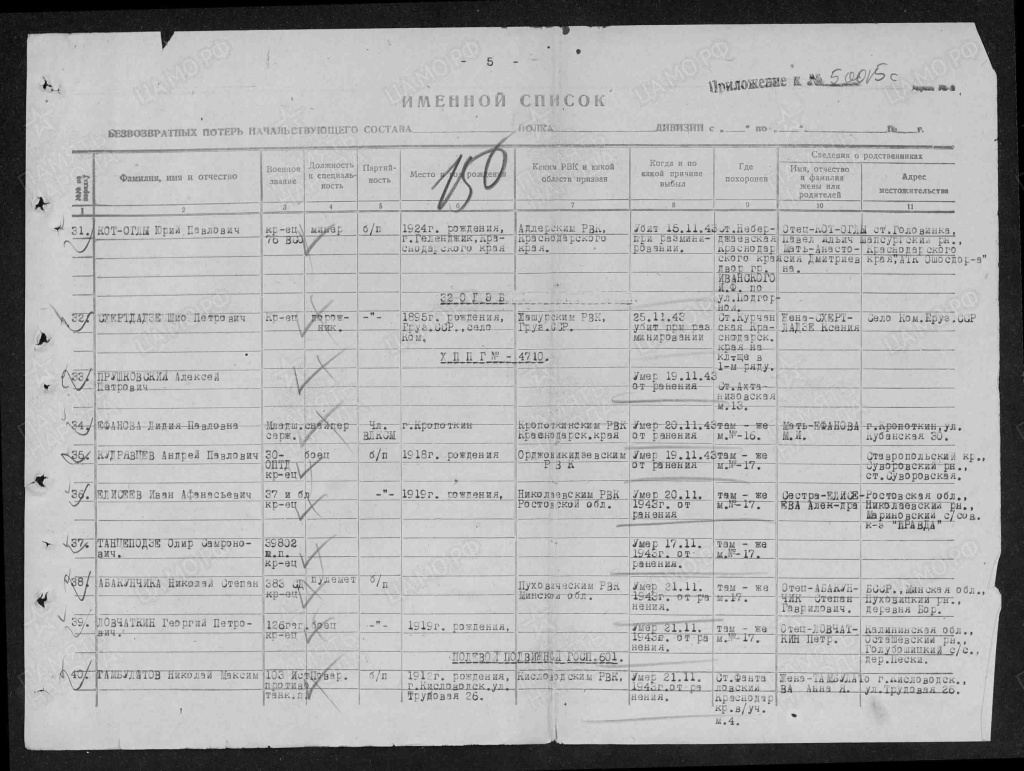 - 5 -
Приложение к № 50015с
ИМЕННОЙ СПИСОК
БЕЗВОЗВРАТНЫХ ПОТЕРЬ НАЧАЛЬСТВУЮЩЕГО СОСТАВА ПОЛКА ДИВИЗИИ с " " по " " г.
150
Фамилия, имя и отчество
Военное звание
Должность и специальность
Партийность
Место и год рождения
Каким РВК и какой области призван
Когда и по какой причине выбыл
Где похоронен
Сведения о родственниках
Имя, отчество и фамилия жены или родителей
Адрес местожительства
2 3 4 5 6 7 8 9 10 11
31. КОТ-ОГЛЫ Юрий Павлович
кр-ец
минер
б/п
1924г. рождения,
г.Геленджик,Кра-
снодарского края
Адлерским РВК,
Краснодарского
края.
Убит 15.11.43
при размини-
ровании.
ст.Небер-
джаевская
Краснодар
ского края
двор гр.
ИВАНСКОГО
И.Ф. по
ул.Подгор-
ной.
Отец-КОТ-ОГЛЫ
Павел Ильич
Мать-Анасто-
сия Дмитриев
на.
ст.Головинка,
Шапсугский рн.,
Краснодарского
32 О Г Э Б
32. СХЕРТЛАДЗЕ Шио Петрович
кр-ец
дорож-
ник.
-"-
1895г. рождения,
Груз.ССР, село
Ком.
Хашурским РВК,
Груз.ССР.
25.11.43
убит при раз
минировании
Ст.Курчан
ская Кра-
снодарск.
края на
кл-ще в
1-м ряду.
Жена-СХЕРТ-
ЛАДЗЕ Ксения
Село Ком.Груз.ССР
Х П П Г № - 4710.
33. ПРУШКОВСКИЙ Алексей
Петрович
Умер 19.11.43
от ранения
Ст.Ахта-
низовская
м.13.
34. ЕФАНОВА Лидия Павловна
Младш.
серж.
снайпер
Чл.
ВЛКОМ
г.Кропоткин
Кропоткинским РВК
Краснодарск.края
Умер 20.11.43
от ранения
там - же
м.№-16.
Мать-ЕФАНОВА
М.И.
г.Кропоткин,ул.
Кубанская 30.
35. КУДРЯВЦЕВ Андрей Павлович
30-
ОПТД
кр-ец
боец
б/п
1918г. рождения
Орджоникидзевским
Р В К
Умер 19.11.43
от ранения
там - же
м.№-17.
Ставропольский кр.,
Суворовский рн.,
ст.Суворовская.
36. ЕЛИСЕЕВ Иван Афанасьевич
кр-ец
-"-
1919г. рождения,
Николаевским РВК
Ростовской обл.
Умер 20.11.
1943г. от
ранения
там - же
м.№-17.
Сестра-ЕЛИСЕ-
ЕВА Алек-дра
Ростовская обл.,
Николаевский рн.,
Мариновский с/сов.
к-з "ПРАВДА"
37. ТАНЦЕПОДЗЕ Олир Самроно-
вич.
39802
п.п.
кр-ец
Умер 17.11.
1943г. от
ранения.
там - же
м.№-17.
38. АБАКУНЧИКА Николай Степан
383 сд
кр-ец
пулемет
б/п
Пуховическим РВК
Минской обл.
Умер 21.11.
1943г. от ра
нения.
там - же
м.17.
Отец-АБАКУН-
ЧИК Степан
Гаврилович.
БССР.,Минская обл.,
Пуховицкий рн.,
деревня Бор.
39. ЛОВЧАТКИН Георгий Петро-
вич.
кр-ец
боец
-"-
1919г. рождения,
Умер 21.11.
1943г. от ра
нения.
там - же
м.№-17.
Отец-ЛОВЧАТ-
КИН Петр.
Калининская обл.,
Осташевский рн.,
Голубошицкий с/с.,
дер.Пески.
ПОЛЕВОЙ ПОДВИЖНОЙ ГОСП.601.
40. ТАМБУЛАТОВ Николай Максим
103 Ист
против
танк.п.
Повар.
б/п
рождения,
г.Кисловодск,ул.
Трудовая 26.
Кисловодским РВК,
Умер 21.11.
1943г.от ра
нения.
Ст.Фанта
ловский
Краснодар
кр.в/уч.
м.4.
Жена-ТАМБУЛАТО
ВА Анна Я.
г.Кисловодск,
ул.Трудовая 26.